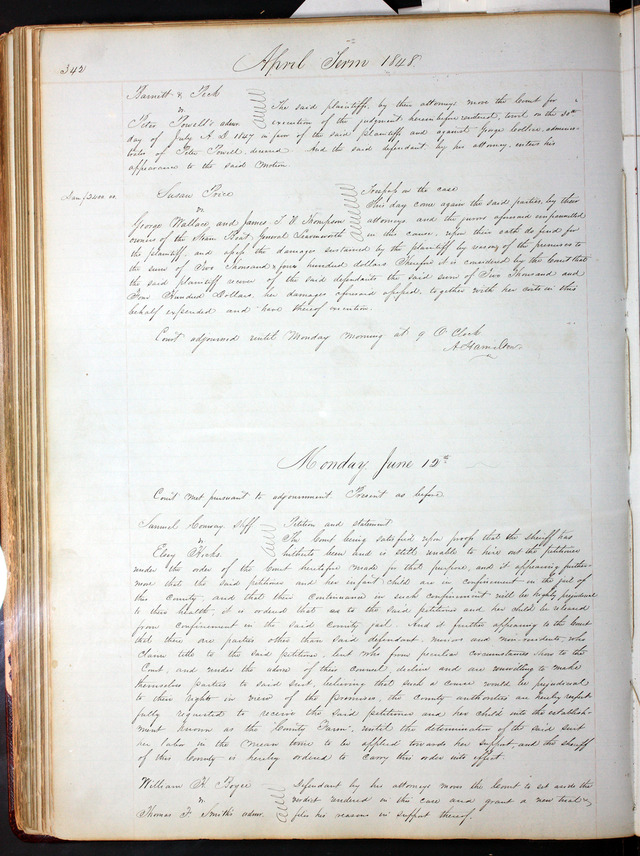 342
April Term 1848.
Barnett &
vs
The said plaintiffs, by their attorneys move the Court for
Peter Powell's admr. execution of the judgment herein before rendered, to wit on the 20th
day of July A.D. 1847 in favor of the said plaintiffs and against George Collier, adminis-
trator of Peter Powell, deceased. And the said defendant by his attorney, enters his
appearance to the said motion.
Susan
vs
Trespass on the case
This day come again the said parties, by their
George Wallace and James T. Thompson attorneys and the jurors aforesaid empannelled
owners of the Steam Boat, General Leavenworth in the cause, upon their oath do find for
the plaintiff, and assess the damages sustained by the plaintiff by reason of the premises to
the sum of Two Thousand & four hundred dollars. Therefore it is considered by the Court that
the said plaintiff recover of the said defendants the said sum of Two Thousand and
Four Hundred Dollars, her damages aforesaid assessed, together with her costs in this
behalf expended and have thereof execution.
Court adjourned until Monday morning at 9 O Clock
A Hamilton
Monday June 12th
Court met pursuant to adjournment Present as before
Samuel Conway Shff
vs
Elsey Hicks
Petition and statement
The Court being satisfied upon proof that the sheriff has
hitherto been and is still unable to hire out the petitioner
under the order of the Court heretofore made for that purpose, and it appearing further-
more that the said petitioner and her infant child are in confinement in the jail of
this County, and that their continuance in such confinement will be highly prejudicial
to their health, it is ordered that the said petitioner and her child be released
from confinement in the said County jail. And it further appearing to the Court
that there are parties other than said defendant, minors and non-residents, who
claim title to the said petitioner, but who from peculiar circumstances shown to the
Court, and under the advice of their counsel, decline and are unwilling to make
themselves parties to said suit, believing that such a course would be prejudicial
to their rights in view of the premises, the County authorities are hereby respect-
fully requested to receive the said petitioner and her child into the establish-
ment known as the County Farm, until the determination of the said suit
her labor in the mean time to be applied towards her support, and the sheriff
of this County is hereby ordered to carry this order into effect.
William H.
vs
Thomas F. Smith's admr.
Defendant by his attorneys moves the Court to set aside the
verdict rendered in this case and grant a new trial &
files his reasons in support thereof.